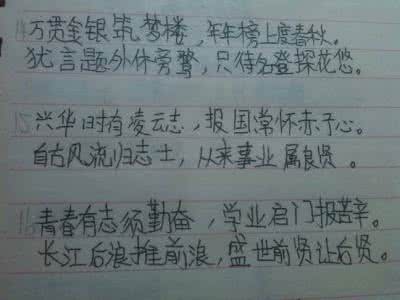 14 万贯金银筑梦楼，年年榜上度春秋。
犹言题外休旁骛，只待名登探花悠。
15 兴华时有凌云志，报国常怀赤子心。
自古风流归志士，从来事业属良贤。
16 青春有志须勤奋，学业启门报苦辛。
长江后浪推前浪，盛世前贤让后贤。